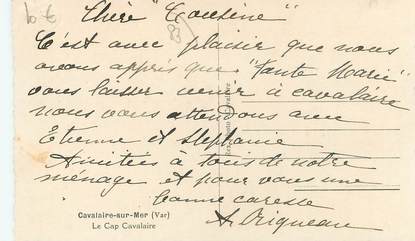 10 €
83
Chère "Cousine"
C'est avec plaisir que nous
avons appris que "Tante Marie"
vous laisser venir à cavalaire
nous vous attendons avec
Etienne et Stephanie
Amitiés à tous de notre
ménage et pour vous une
bonne caresse
Cavalaire-sur-Mer (Var)
Le Cap Cavalaire